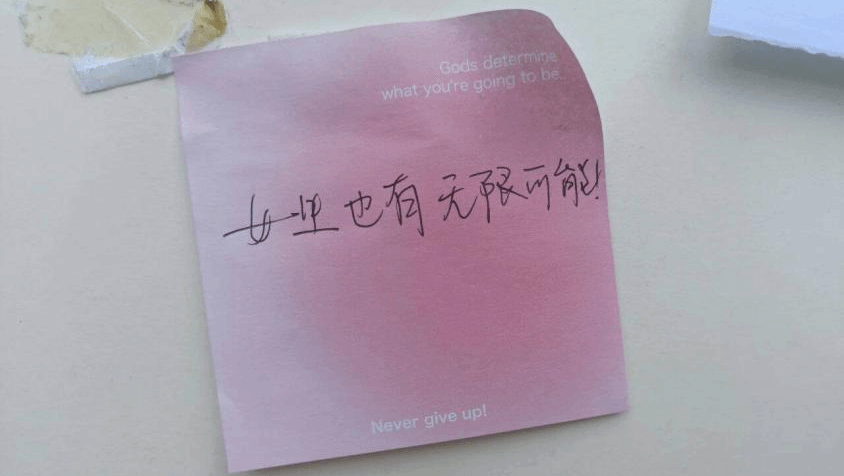 Gods determine
what you're going to be.
女里也有无限可能!
Never give up!